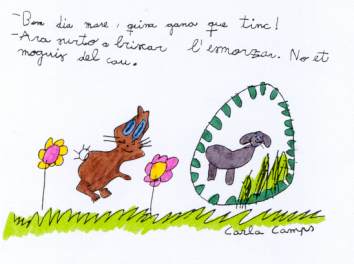 -Bon dia mare, quina gana que tinc!
-Ara surto a buscar l'esmorzar. No et
moguis del cau.
Carla Camps